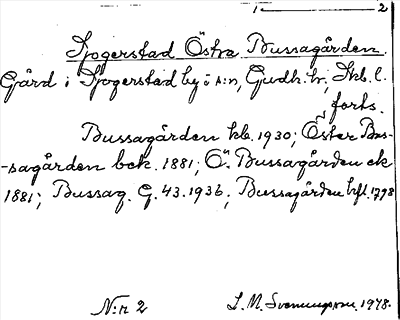 1 — 2
Fjogerstad Östra Bussagården
Gård i Fjogerstad by o s:n, Gudh. hd, Skb. l.
forts.
Bussagården kb. 1930; Öster Bus-
-sagården bck. 1881; Ö. Bussagården ek
1881; Bussag. G. 43. 1936; Bussagården hfl. 1798
N:r 2 L. M. Svenungsson. 1978.